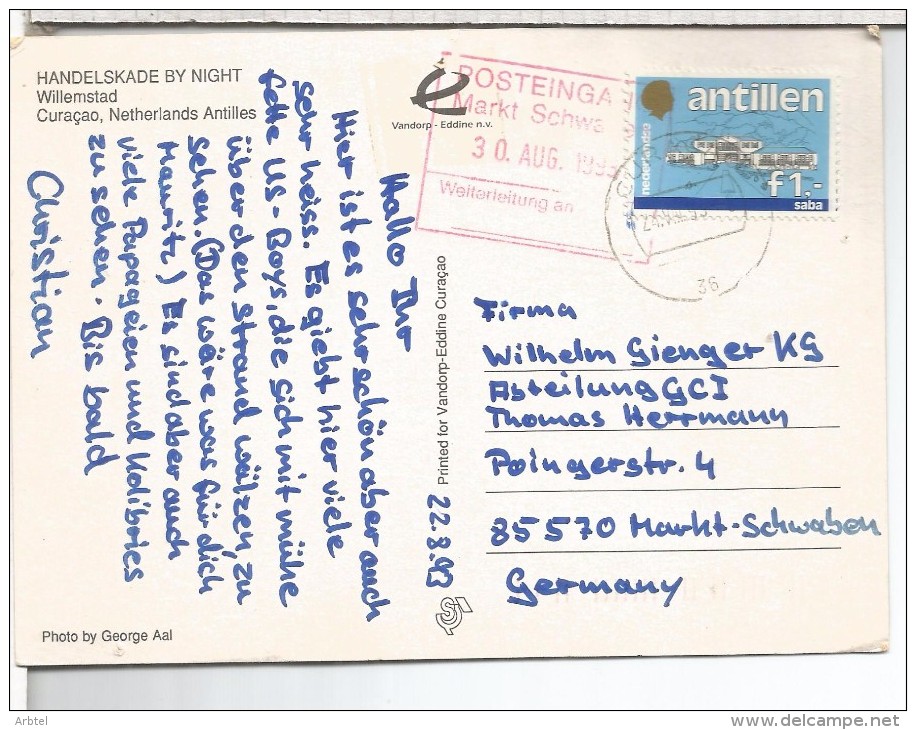 HANDELSKADE BY NIGHT
Willemstad
Curaçao, Netherlands Antilles
Vandorp - Eddine n.v.
POSTEINGA
Markt Schwa
30. AUG. 199
Weiterleitung an
antillen
nederlandse
f 1,-
saba
36
22.8.93
Hallo Ihr
Hier ist es sehr schön aber auch
sehr heiss. Es giebt hier viele
fette US-Boys, die sich mit mühe
über den Strand wälzen, zu
sehen. (Das wäre was für dich
Mauritz) Es sind aber auch
viele Papageien und Kolibries
zu sehen. Bis bald
Christian
Printed for Vandorp-Eddine Curaçao
Firma
Wilhelm Gienger KG
Abteilung GCI
Thomas Herrmann
Poingerstr. 4
85570 Markt-Schwaben
Germany
Photo by George Aal
Arbtel
www.delcampe.net